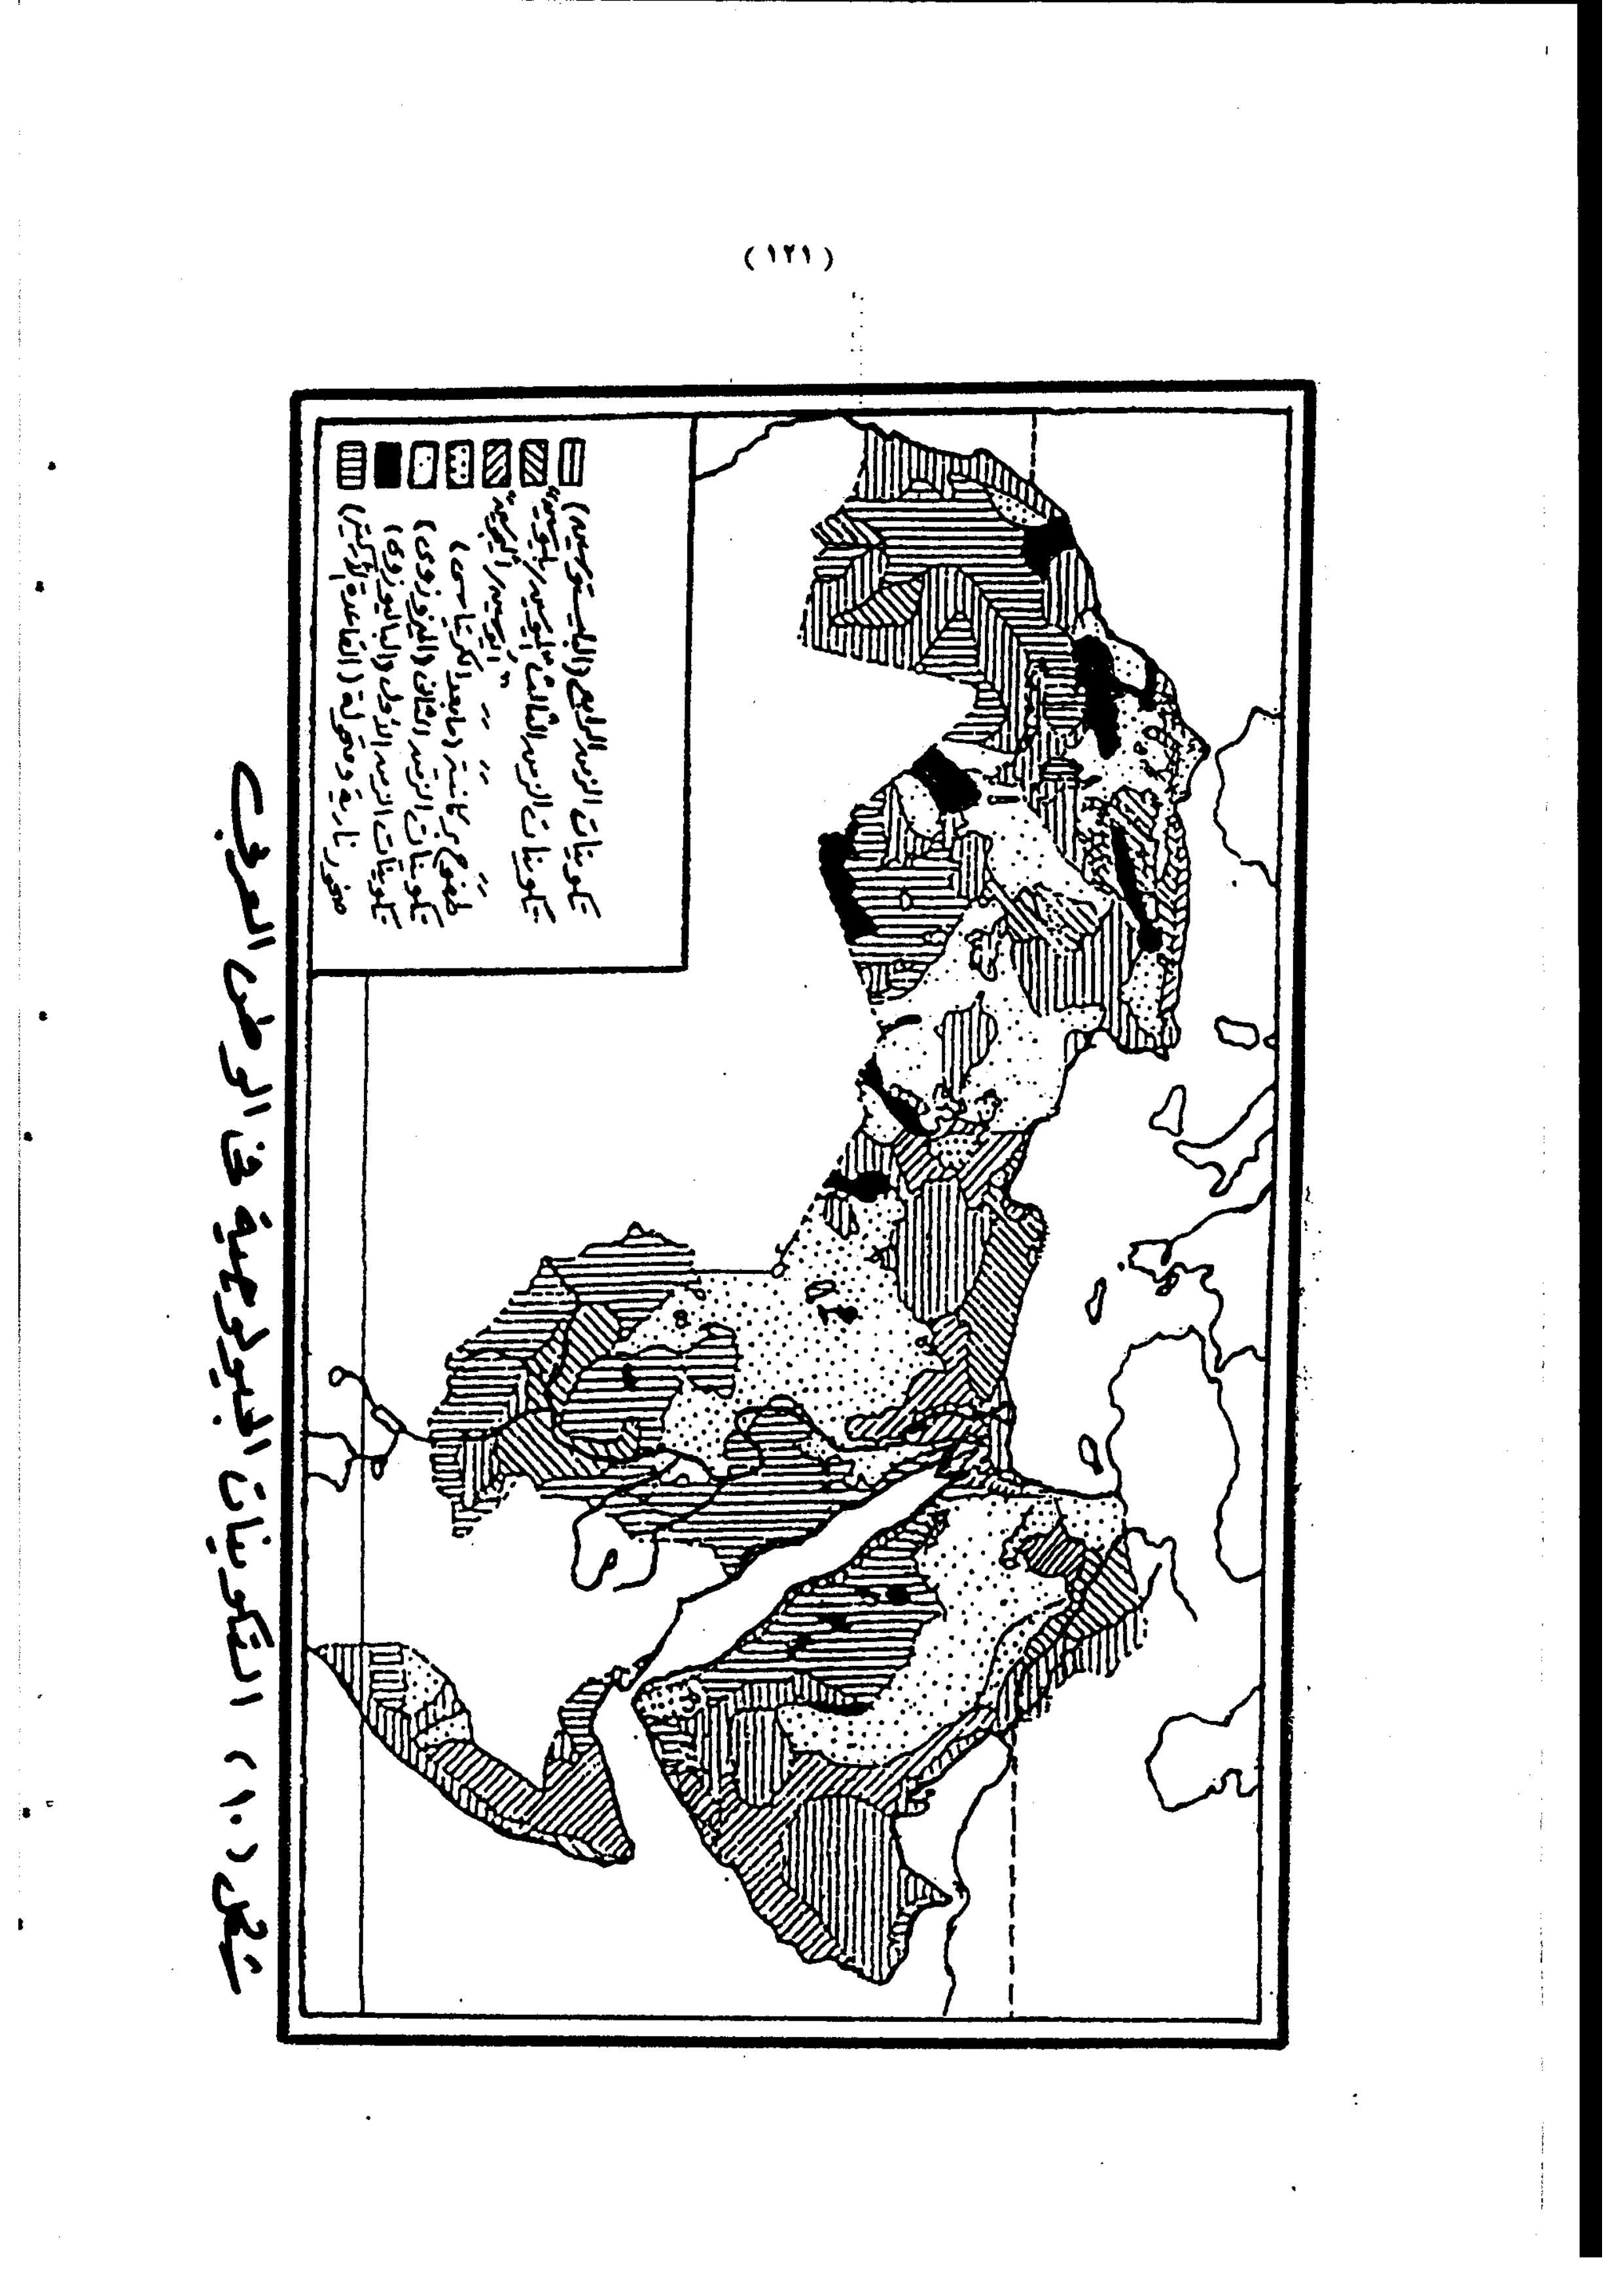 (١٢١)
تكوينات الزمن الرابع (البليستوسين)
تكوينات الزمن الثالث "الميوسين/بليوسين"
" " " " "أيوسين/أليجوسين"
طفوح بركانية (ما بعد الكريتاسى)
تكوينات الزمن الثانى (الميزوزوى)
تكوينات الزمن الأول (الباليوزوى)
صخور نارية ومتحولة (القاعدة الأركية)
شكل (١٠) التكوينات الجيولوجية فى الوطن العربى